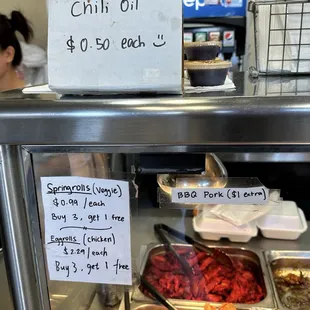 Chili Oil
$0.50 each
Springrolls (Veggie)
$0.99 /each
Buy 3, get 1 free
Eggrolls (chicken)
$2.29 /each
Buy 3, get 1 free
BBQ Pork ($1 extra)